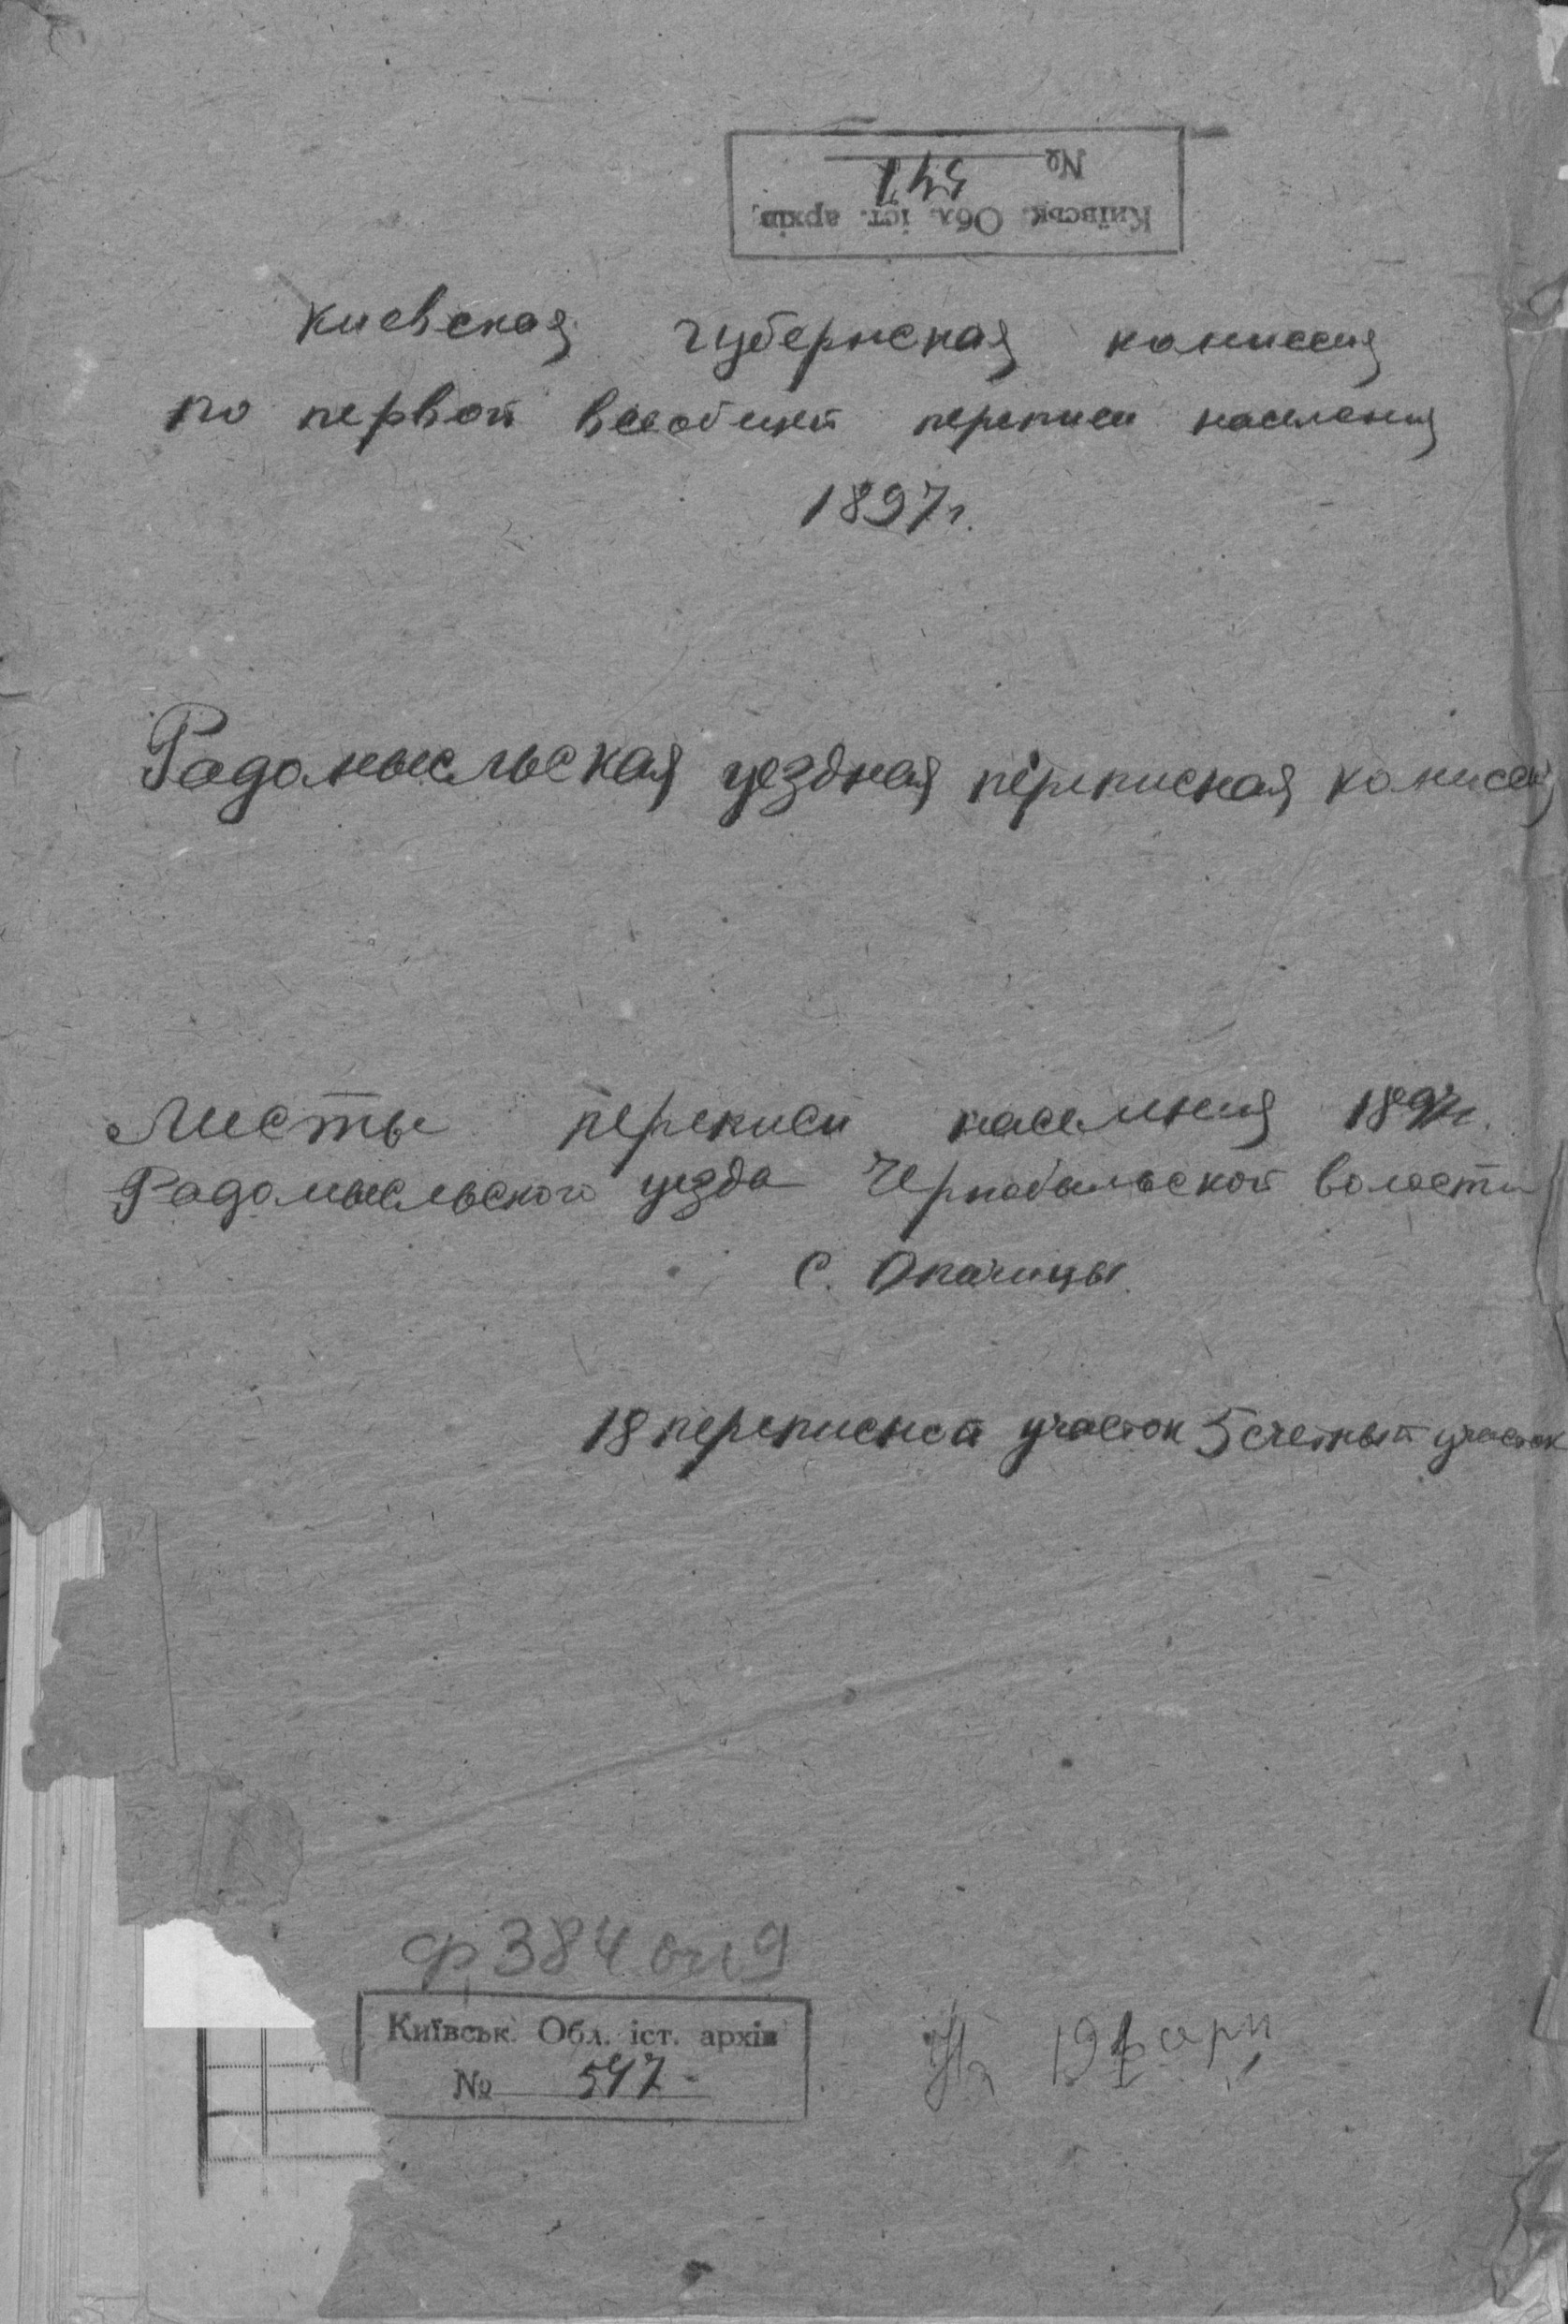 Київськ. Обл. іст. архів
№ 547
Киевская губернская комиссия
по первой всеобщей переписи населения
1897 г.
Радомысльская уездная переписная комиссия
Листы переписи населения 1897 г.
Радомысльского уезда Чернобыльской волости
с. Опачицы
18 переписной участок 5 счетный участок
ф 384 оп 9
Київськ. Обл. іст. архів
№ 547